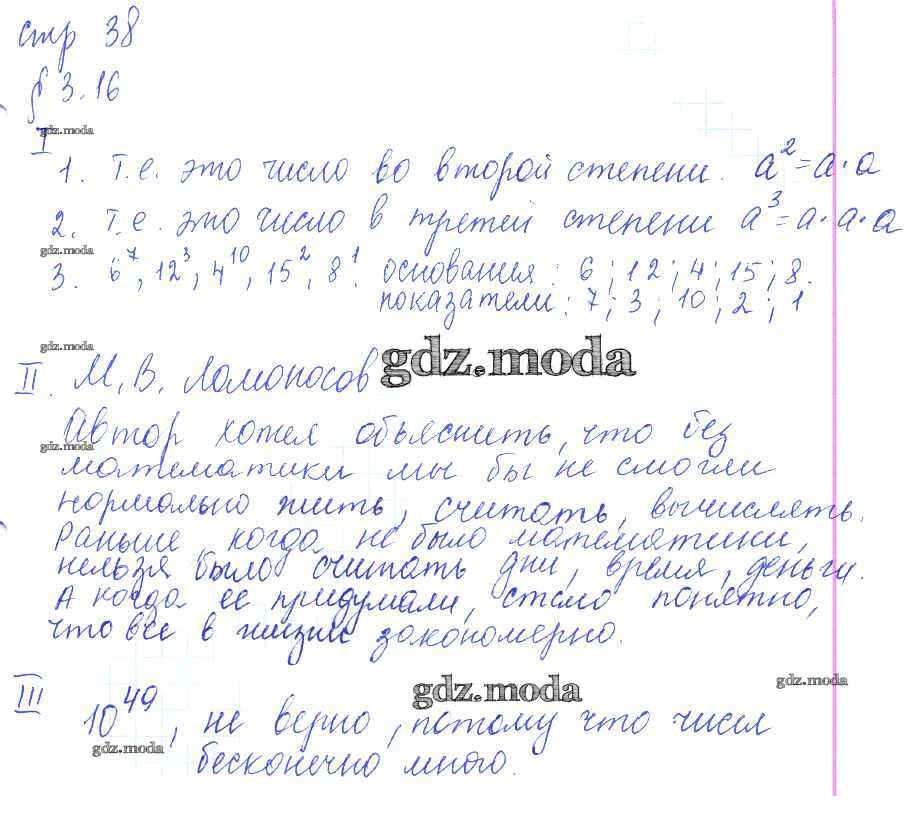 стр 38
§ 3.16
gdz.moda
I
1. Т.е. это число во второй степени. a² = a · a
2. Т.е. это число в третей степени a³ = a · a · a
gdz.moda
3. 6⁷, 12³, 4¹⁰, 15², 8¹. основания: 6; 12; 4; 15; 8.
показатели: 7; 3; 10; 2; 1
gdz.moda
II. М. В. Ломоносов gdz.moda
Автор хотел объяснить, что без
gdz.moda
математики мы бы не смогли
нормально жить, считать, вычислять.
Раньше, когда не было математики,
нельзя было считать дни, время, деньги.
А когда ее придумали, стало понятно,
что все в жизни закономерно.
III gdz.moda gdz.moda
10⁴⁹, не верно, потому что чисел
gdz.moda
бесконечно много.